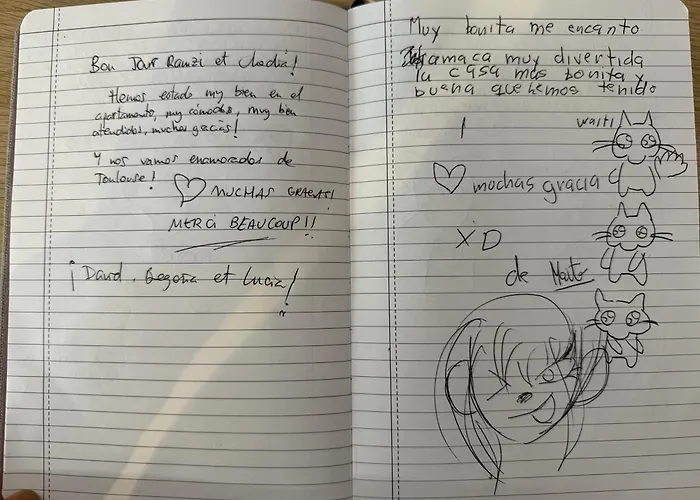 Bon Jour Ramzi et Chadia!
Hemos estado my bien en el
apartamento, my cómodos, muy bien
atendidos, muchas gracias!
Y nos vamos enamorados de
Toulouse!
MUCHAS GRACIAS!
MERCI BEAUCOUP!!
¡David, Begoña et Lucía!
Muy bonita me encanto
amaca muy divertida
la casa mas bonita y
buena que hemos tenido
waiti
muchas gracia
X'D
de